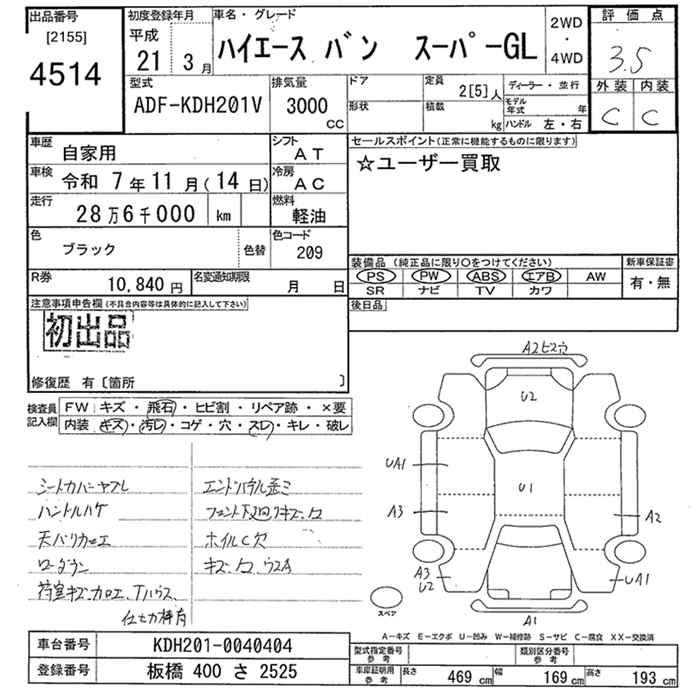 出品番号
[2155]
4514
初度登録年月
平成
21 3月
車名・グレード
ハイエース バン スーパーGL
2WD
・
4WD
評価点
3.5
外装 内装
C C
型式
ADF-KDH201V
排気量
3000
cc
ドア
形状
定員
2[5]人
積載
kg
ディーラー・並行
モデル年式 年
ハンドル 左・右
車歴
自家用
シフト
AT
車検
令和 7年11月(14日)
冷房
AC
走行
28万6千000 km
燃料
軽油
色
ブラック
色替
色コード
209
R券
10,840円
名変通知期限
月 日
セールスポイント(正常に機能するものに限ります)
☆ユーザー買取
装備品(純正品に限り〇をつけてください)
新車保証書
PS PW ABS エアB AW
SR ナビ TV カワ
有・無
後日品
注意事項申告欄(不具合内容等は具体的に記入して下さい)
初出品
修復歴 有〔箇所 〕
検査員
記入欄
FW キズ・飛石・ヒビ割・リペア跡・×要
内装 キズ・汚レ・コゲ・穴・スレ・キレ・破レ
シートカバーヤブレ
ハンドルハゲ
天バリカコエ
ローダウン
エンドパネル歪ミ
フロント下廻リキズ、凹
ホイルC穴
キズ、凹、ウスA
A2ビス穴
U2
UA1
U1
A3
A2
A3
U2
UA1
A1
スペア
A－キズ E－エクボ U－凹み W－補修跡 S－サビ C－腐食 XX－交換済
車台番号
KDH201-0040404
登録番号
板橋 400 さ 2525
型式指定番号
参考
類別区分番号
参考
車庫証明用
参考
長さ 469 cm 幅 169 cm 高さ 193 cm